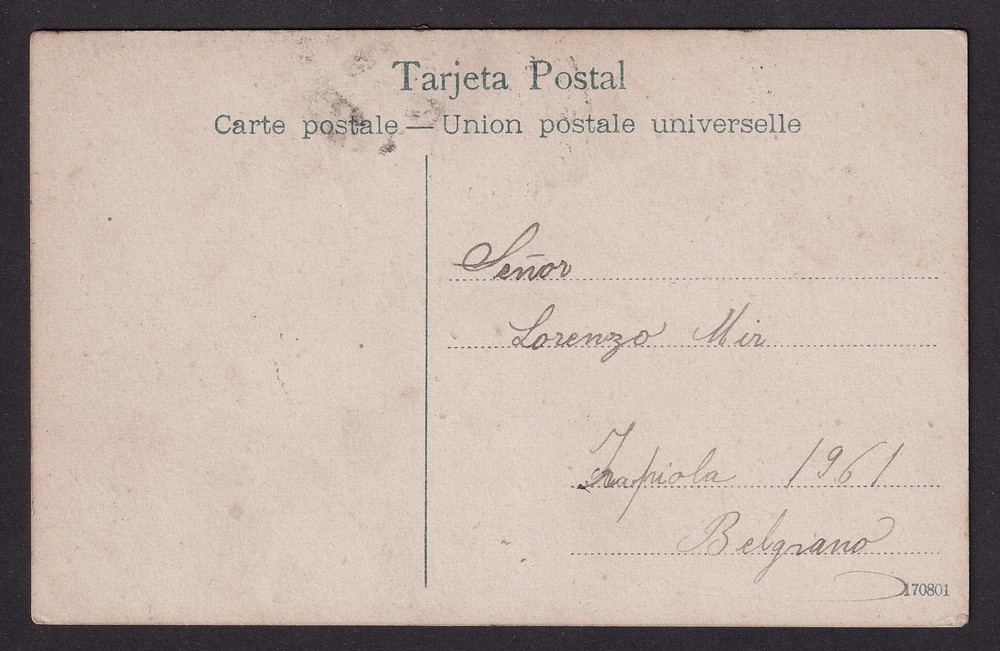 Tarjeta Postal
Carte postale — Union postale universelle
Señor
Lorenzo Mir
Zapiola 1961
Belgrano
170801